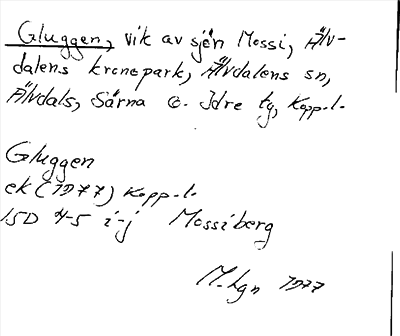 Gluggen, vik av sjön Mossi, Älv-
dalens kronopark, Älvdalens sn,
Älvdals, Särna o. Idre tg, Kopp.l.
Gluggen
ek (1977) Kopp.l.
15D 4-5 i-j Mossiberg
M.Lgn 1977